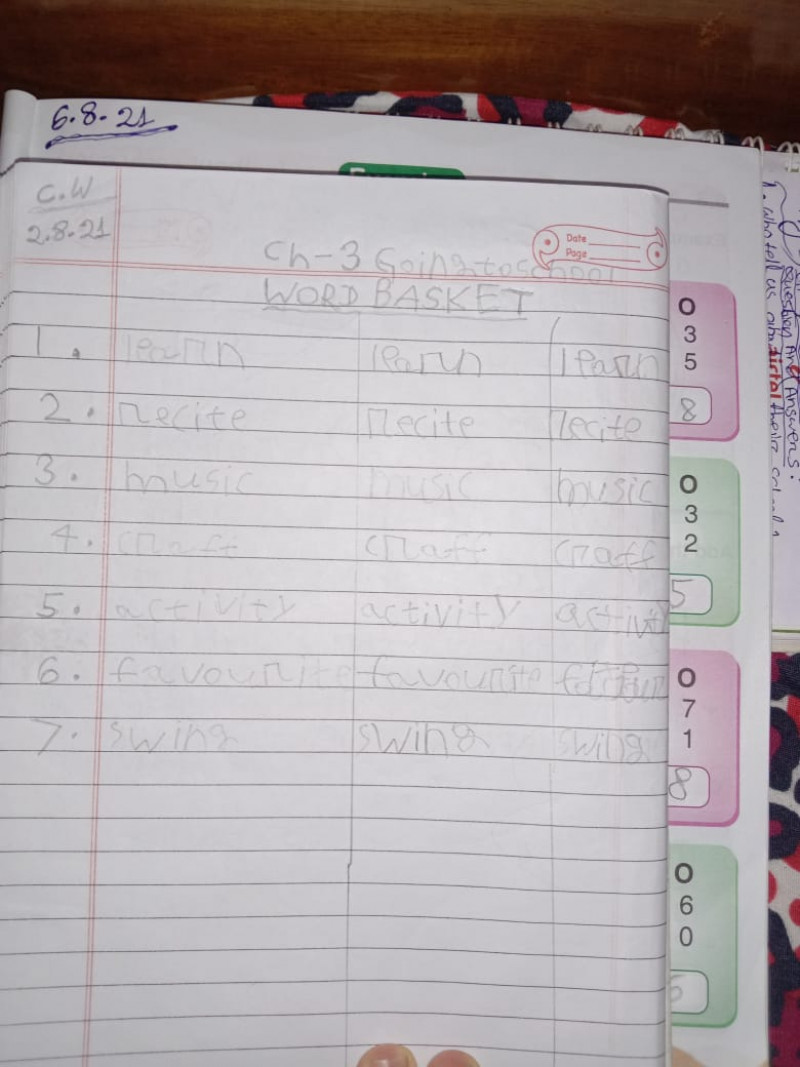 6.8.21
C.W
2.8.21
Date
Page
Ch-3 Going to school
WORD BASKET
1. learn learn learn
2. recite recite recite
3. music music music
4. craft craft craft
5. activity activity activity
6. favourite favourite
7. swing swing swing
O
3
5
8
O
3
2
5
O
7
1
8
O
6
0
Question And Answers:
1. Who tell us about their school